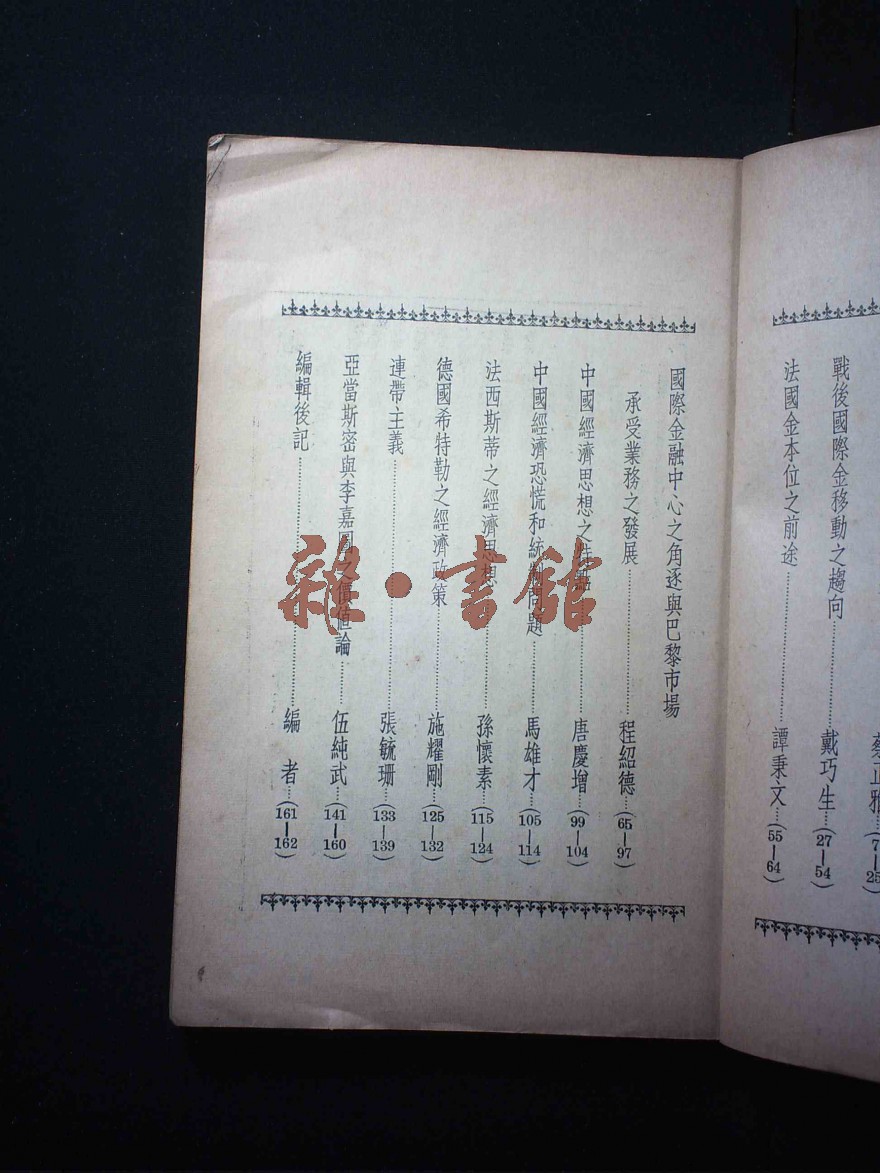 蔡正雅……(7—25
戰後國際金移動之趨向……戴巧生……(27—54)
法國金本位之前途……譚秉文……(55—64)
國際金融中心之角逐與巴黎市場
承受業務之發展……程紹德……(65—97)
中國經濟思想之……唐慶增……(99—104)
中國經濟恐慌和統制問題……馬雄才……(105—114)
法西斯蒂之經濟思想……孫懷素……(115—124)
德國希特勒之經濟政策……施耀剛……(125—132)
連帶主義……張毓珊……(133—139)
亞當斯密與李嘉圖之價值論……伍純武……(141—160)
編輯後記……編者……(161—162)
雜·書館